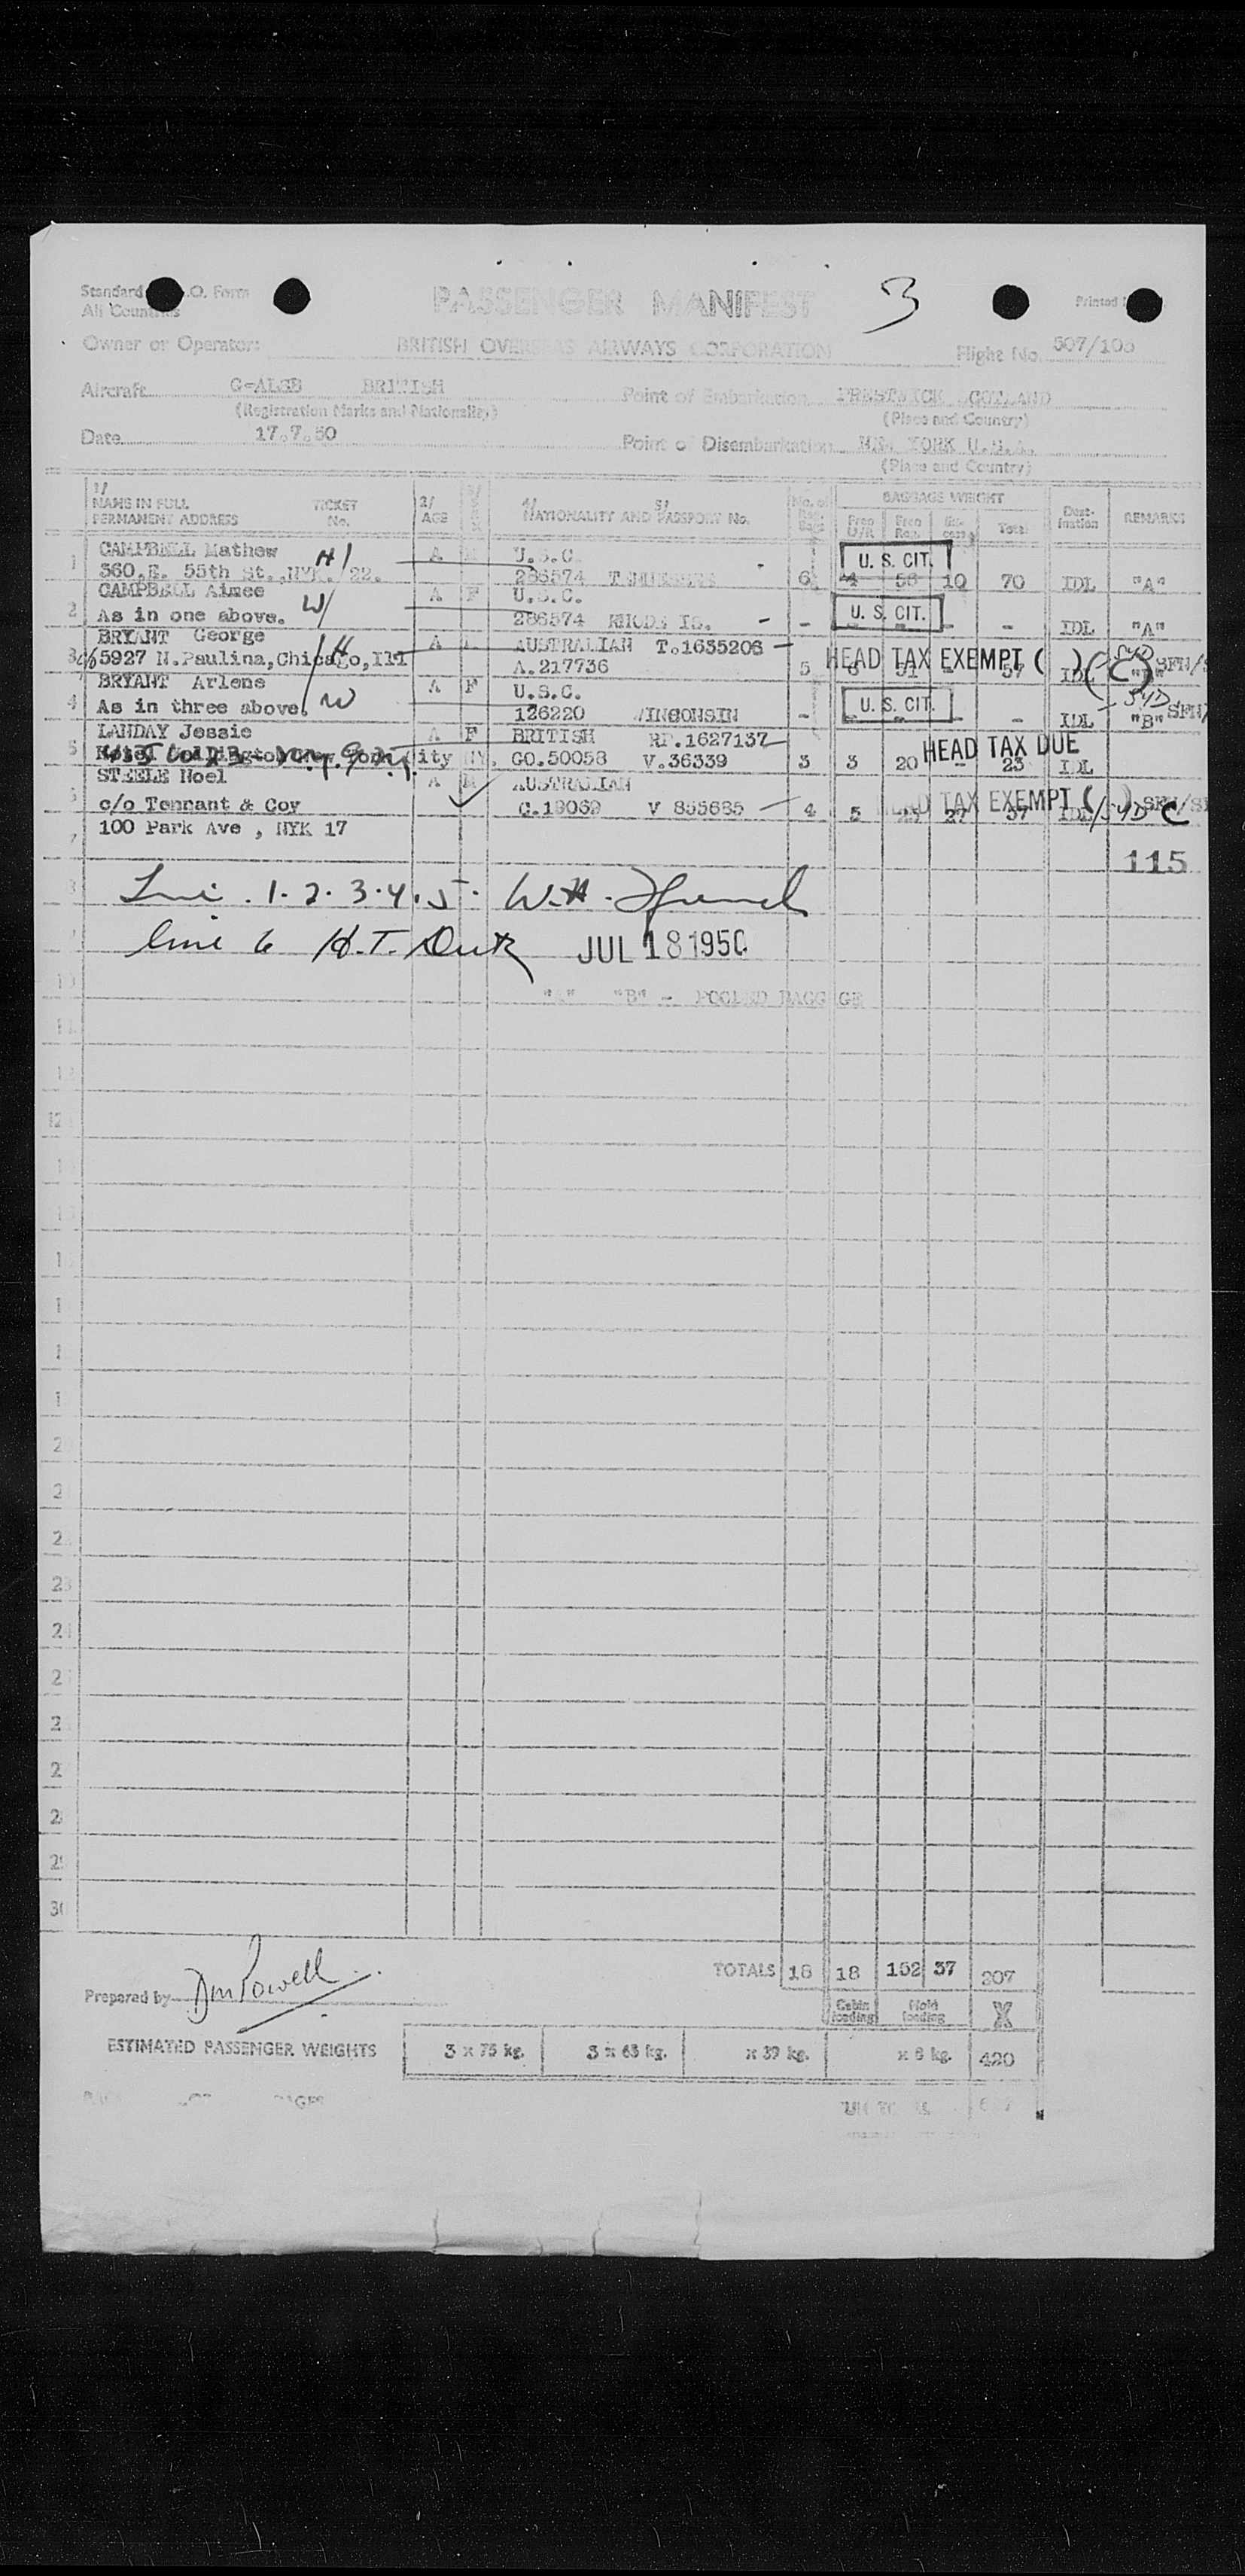 Standard .O. Form
All Countries
PASSENGER MANIFEST
3
Printed
Owner or Operator: BRITISH OVERSEAS AIRWAYS CORPORATION Flight No.
Aircraft G-ALSB BRITISH Point of Embarkation PRESTWICK SCOTLAND
(Registration Marks and Nationality) (Place and Country)
Date 17.7.50 Point of Disembarkation NEW YORK U.S.A.
(Place and Country)
1/ NAME IN FULL PERMANENT ADDRESS TICKET No. 2/ AGE 4/ 5/ NATIONALITY AND PASSPORT No. No. of BAGGAGE WEIGHT Total Destination REMARKS
1 CAMPBELL Mathew H/ A U.S.C. U. S. CIT.
360.E. 55th St.,NYK. 22. 286574 TENNESSEE 6 4 56 10 70 IDL "A"
CAMPBELL Aimee W/ A F U.S.C. U. S. CIT.
2 As in one above. 286574 RHODE IS. - - - - - IDL "A"
BRYANT George /H A AUSTRALIAN T.1635206
3 c/o 5927 N.Paulina,Chicago,Ill A.217736 5 HEAD TAX EXEMPT ( ) IDL (C) SYD
BRYANT Arlene / W A F U.S.C. U. S. CIT.
4 As in three above. 126220 WINSONSIN - - IDL "B" SYD
LANDAY Jessie A F BRITISH RP.1627137 HEAD TAX DUE
5 City NY. GO.50058 V.36339 3 3 20 - 23 IDL
STEELE Noel A M AUSTRALIAN
c/o Tennant & Coy C.19069 V 855685 4 5 27 37 HEAD TAX EXEMPT ( ) IDL/SYD C
100 Park Ave , NYK 17
115
Line 1. 2. 3. 4. 5. W.H.
line 6 H.T. JUL 18 1950
"A" "B" - POOLED BAGGAGE
TOTALS 18 18 152 37 207
Prepared by
Cabin loading Hold loading X
ESTIMATED PASSENGER WEIGHTS 3 x 75 kg. 3 x 65 kg. x 39 kg. x 8 kg. 420